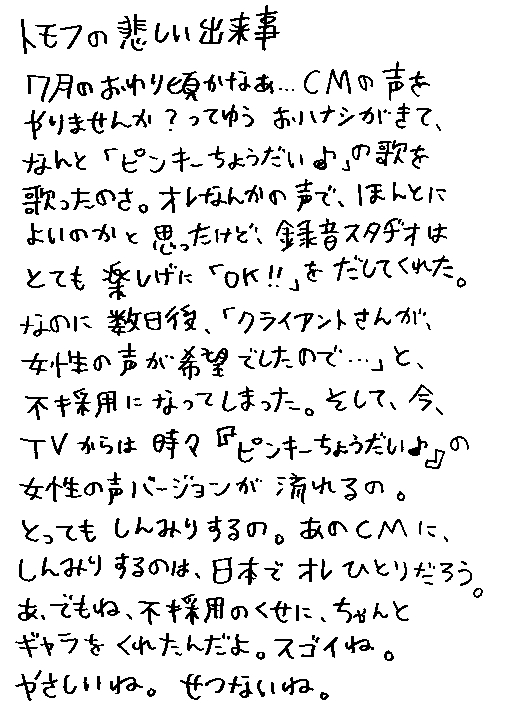 トモフの悲しい出来事
7月のおわり頃かなぁ…CMの声を
やりませんか？ってゆう おハナシがきて、
なんと「ピンキーちょうだい♪」の歌を
歌ったのさ。オレなんかの声で、ほんとに
よいのかと思ったけど、録音スタヂオは
とても楽しげに「OK!!」をだしてくれた。
なのに数日後、「クライアントさんが、
女性の声が希望でしたので…」と、
不採用になってしまった。そして、今、
TVからは時々『ピンキーちょうだい♪』の
女性の声バージョンが流れるの。
とってもしんみりするの。あのCMに、
しんみりするのは、日本でオレひとりだろう。
あ、でもね、不採用のくせに、ちゃんと
ギャラをくれたんだよ。スゴイね。
やさしいね。せつないね。